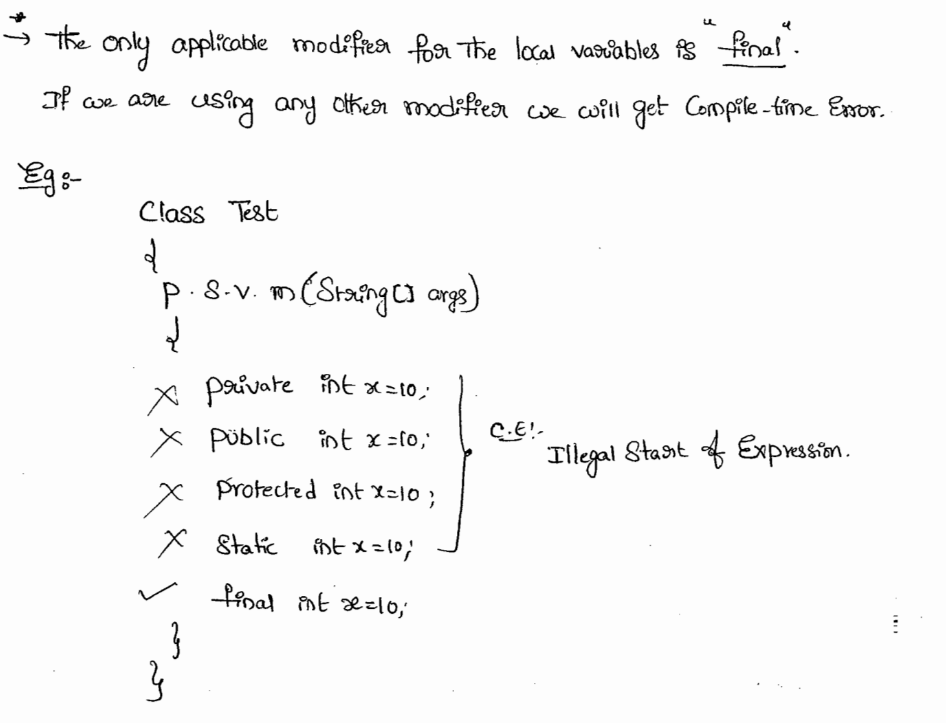 * → The only applicable modifier for the local variables is "final".
If we are using any other modifier we will get Compile-time Error.
Eg:-
Class Test
{
p.s.v.m(String[] args)
{
✗ private int x=10;
✗ public int x=10;
✗ protected int x=10;
✗ static int x=10;
C.E:- Illegal Start of Expression.
✓ final int x=10;
}
}